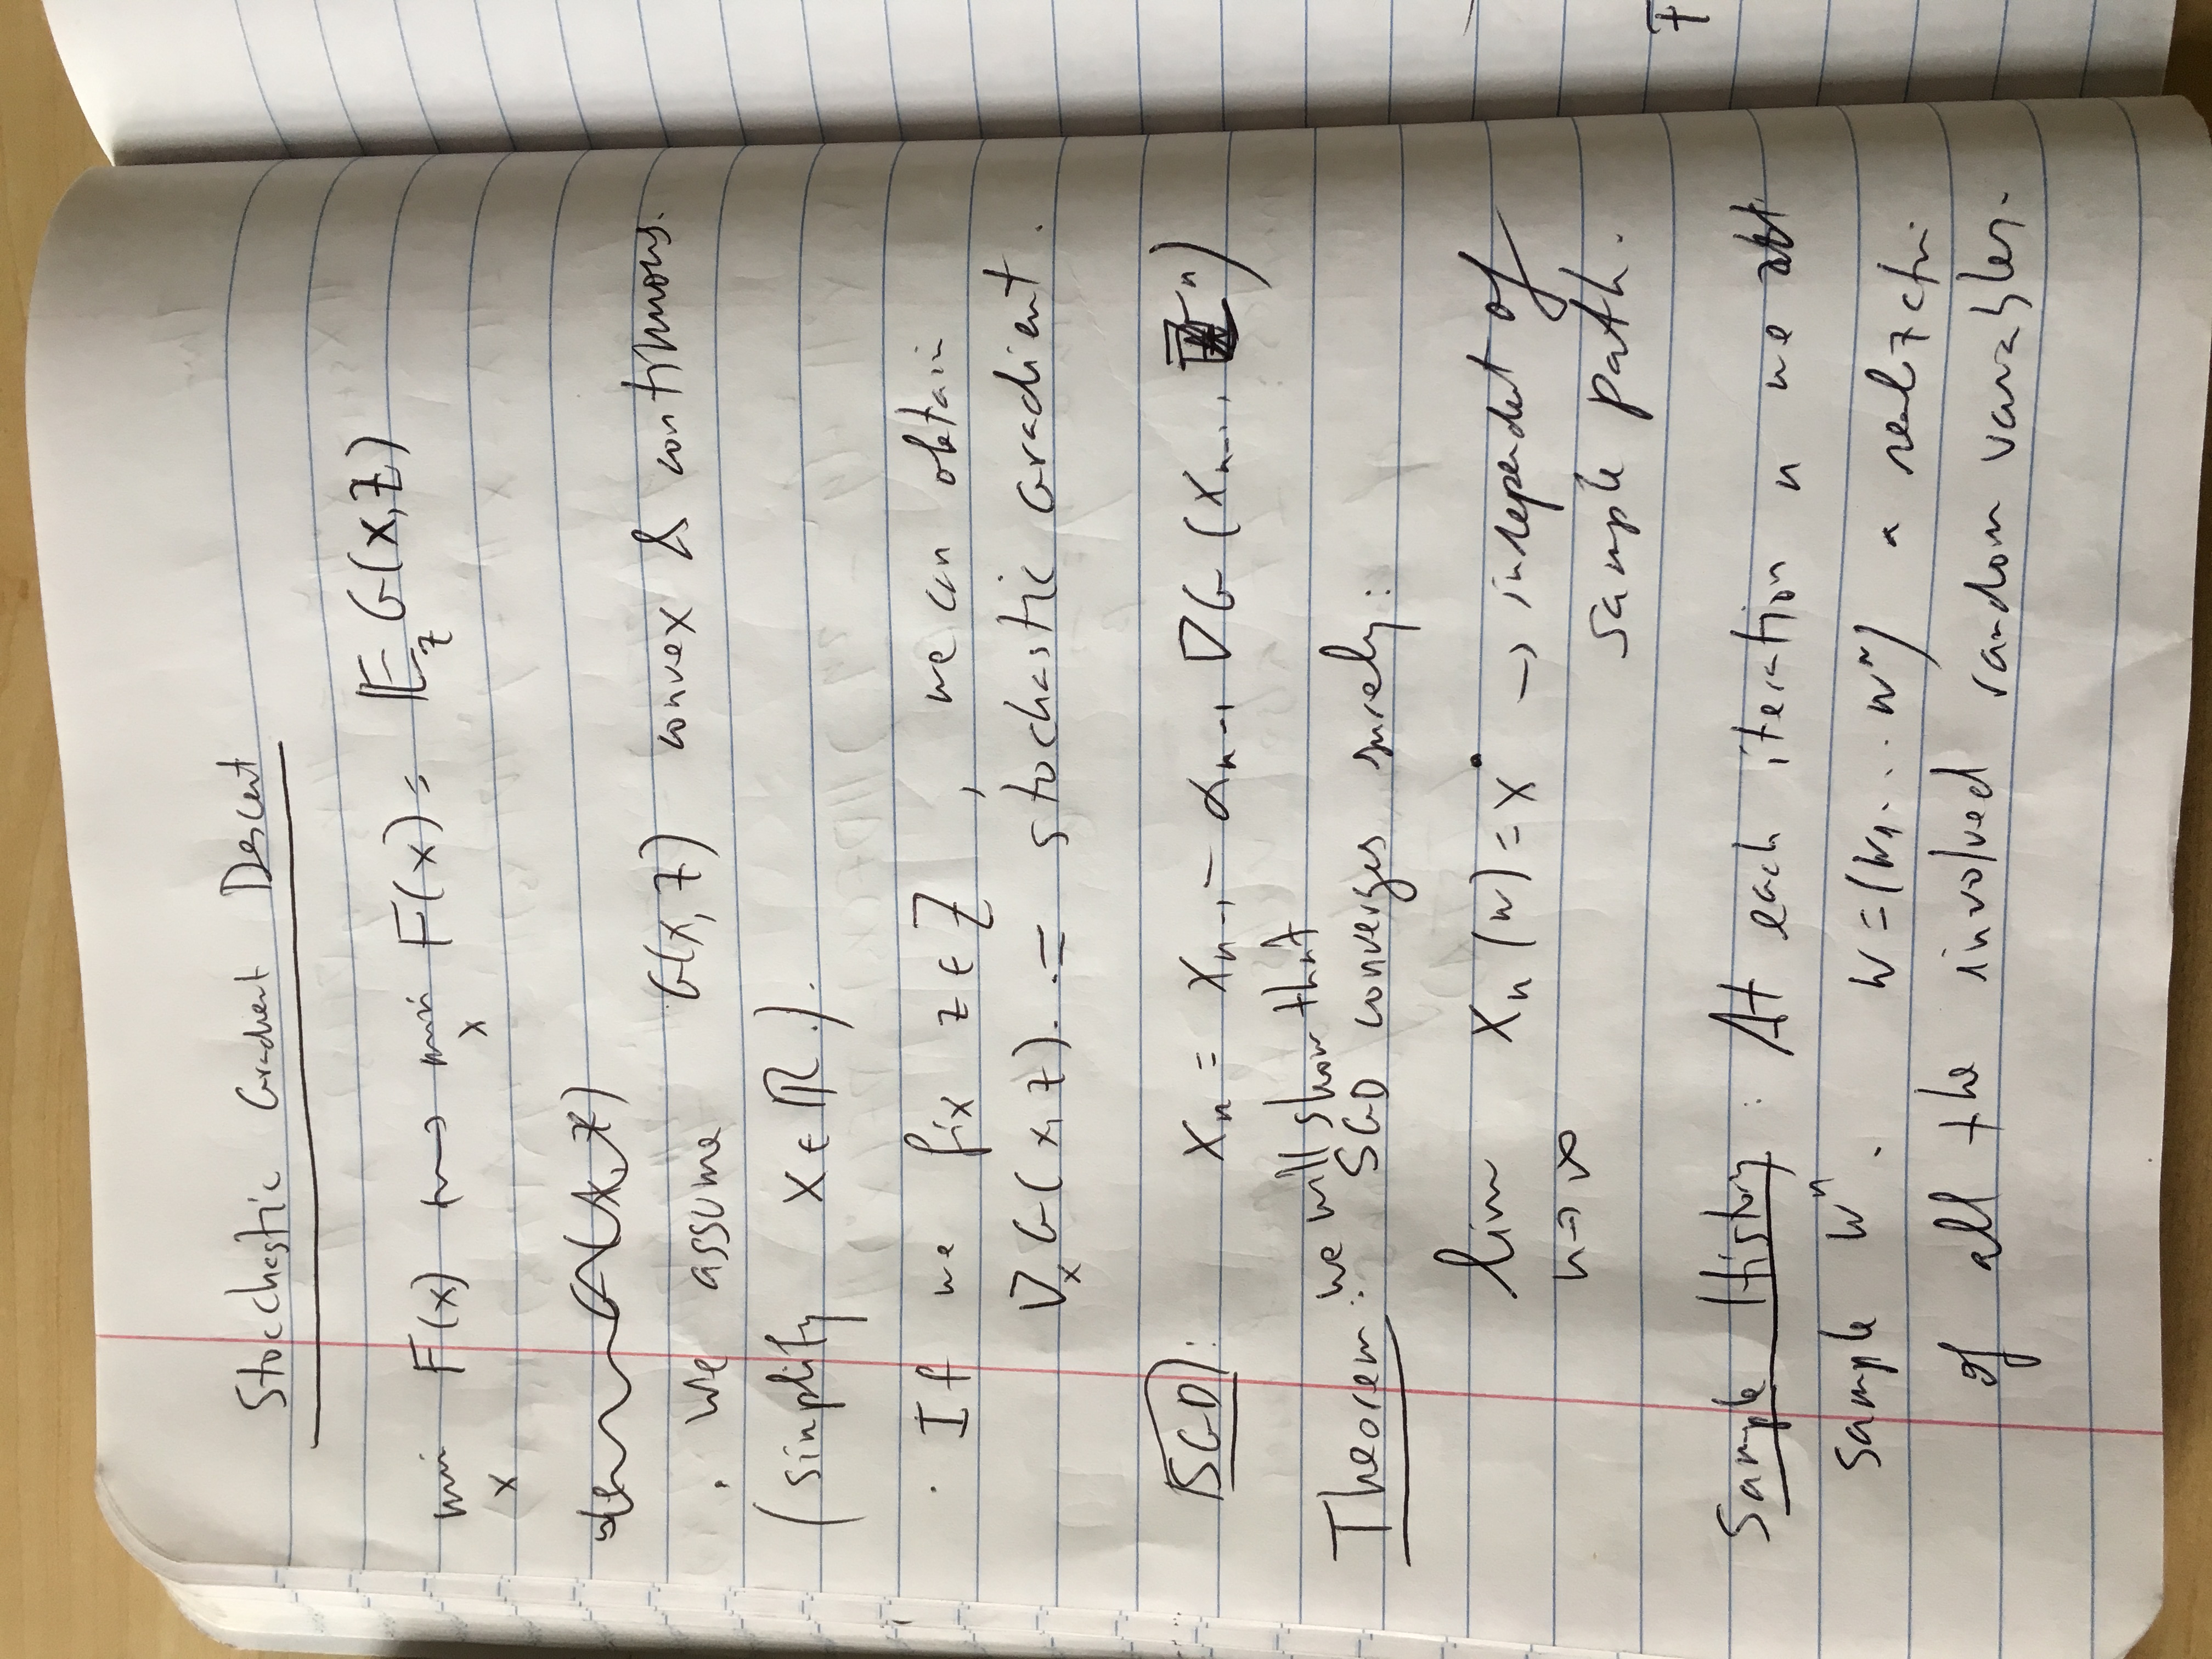 Stocchastic Gradient Descent
min F(x) ⟷ min F(x) = 𝔼_z G(x,Z)
x x
G(x,z)
. We assume G(x,z) convex & continuous.
(simplify x ∈ ℝ.).
· If we fix z ∈ Z, we can obtain
∇_x G(x,z). .= stochastic Gradient.
SGD: X_n = X_{n-1} - α_{n-1} ∇G(X_{n-1}, Z^n)
we will show that
Theorem: SGD converges surely:
lim X_n(w) = x* → independent of
n→∞
sample path.
Sample History: At each iteration n we
sample W^n. W = (W_1...W^n) a realization
of all the involved random variables.
F